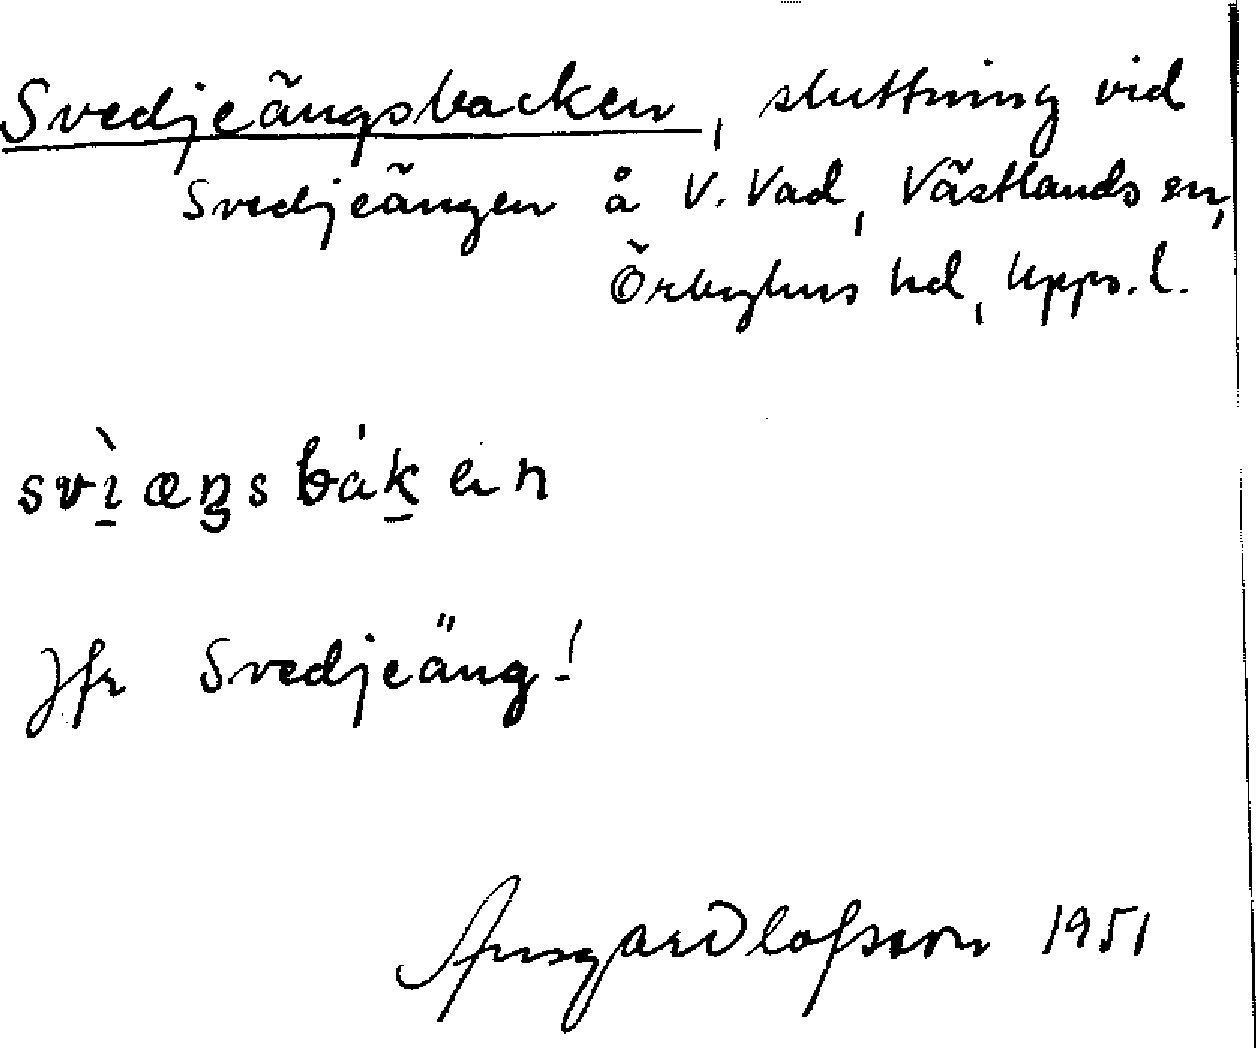 Svedjeängsbacken, sluttning vid
Svedjeängen å V. Vad, Västlands sn,
Örbyhus hd, Upps. l.
Jfr Svedjeäng!
Olofsson 1951